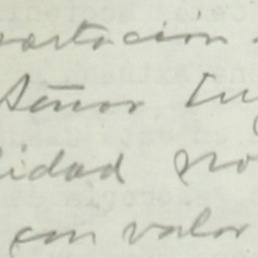 portación
Señor Ing
idad no
con valor